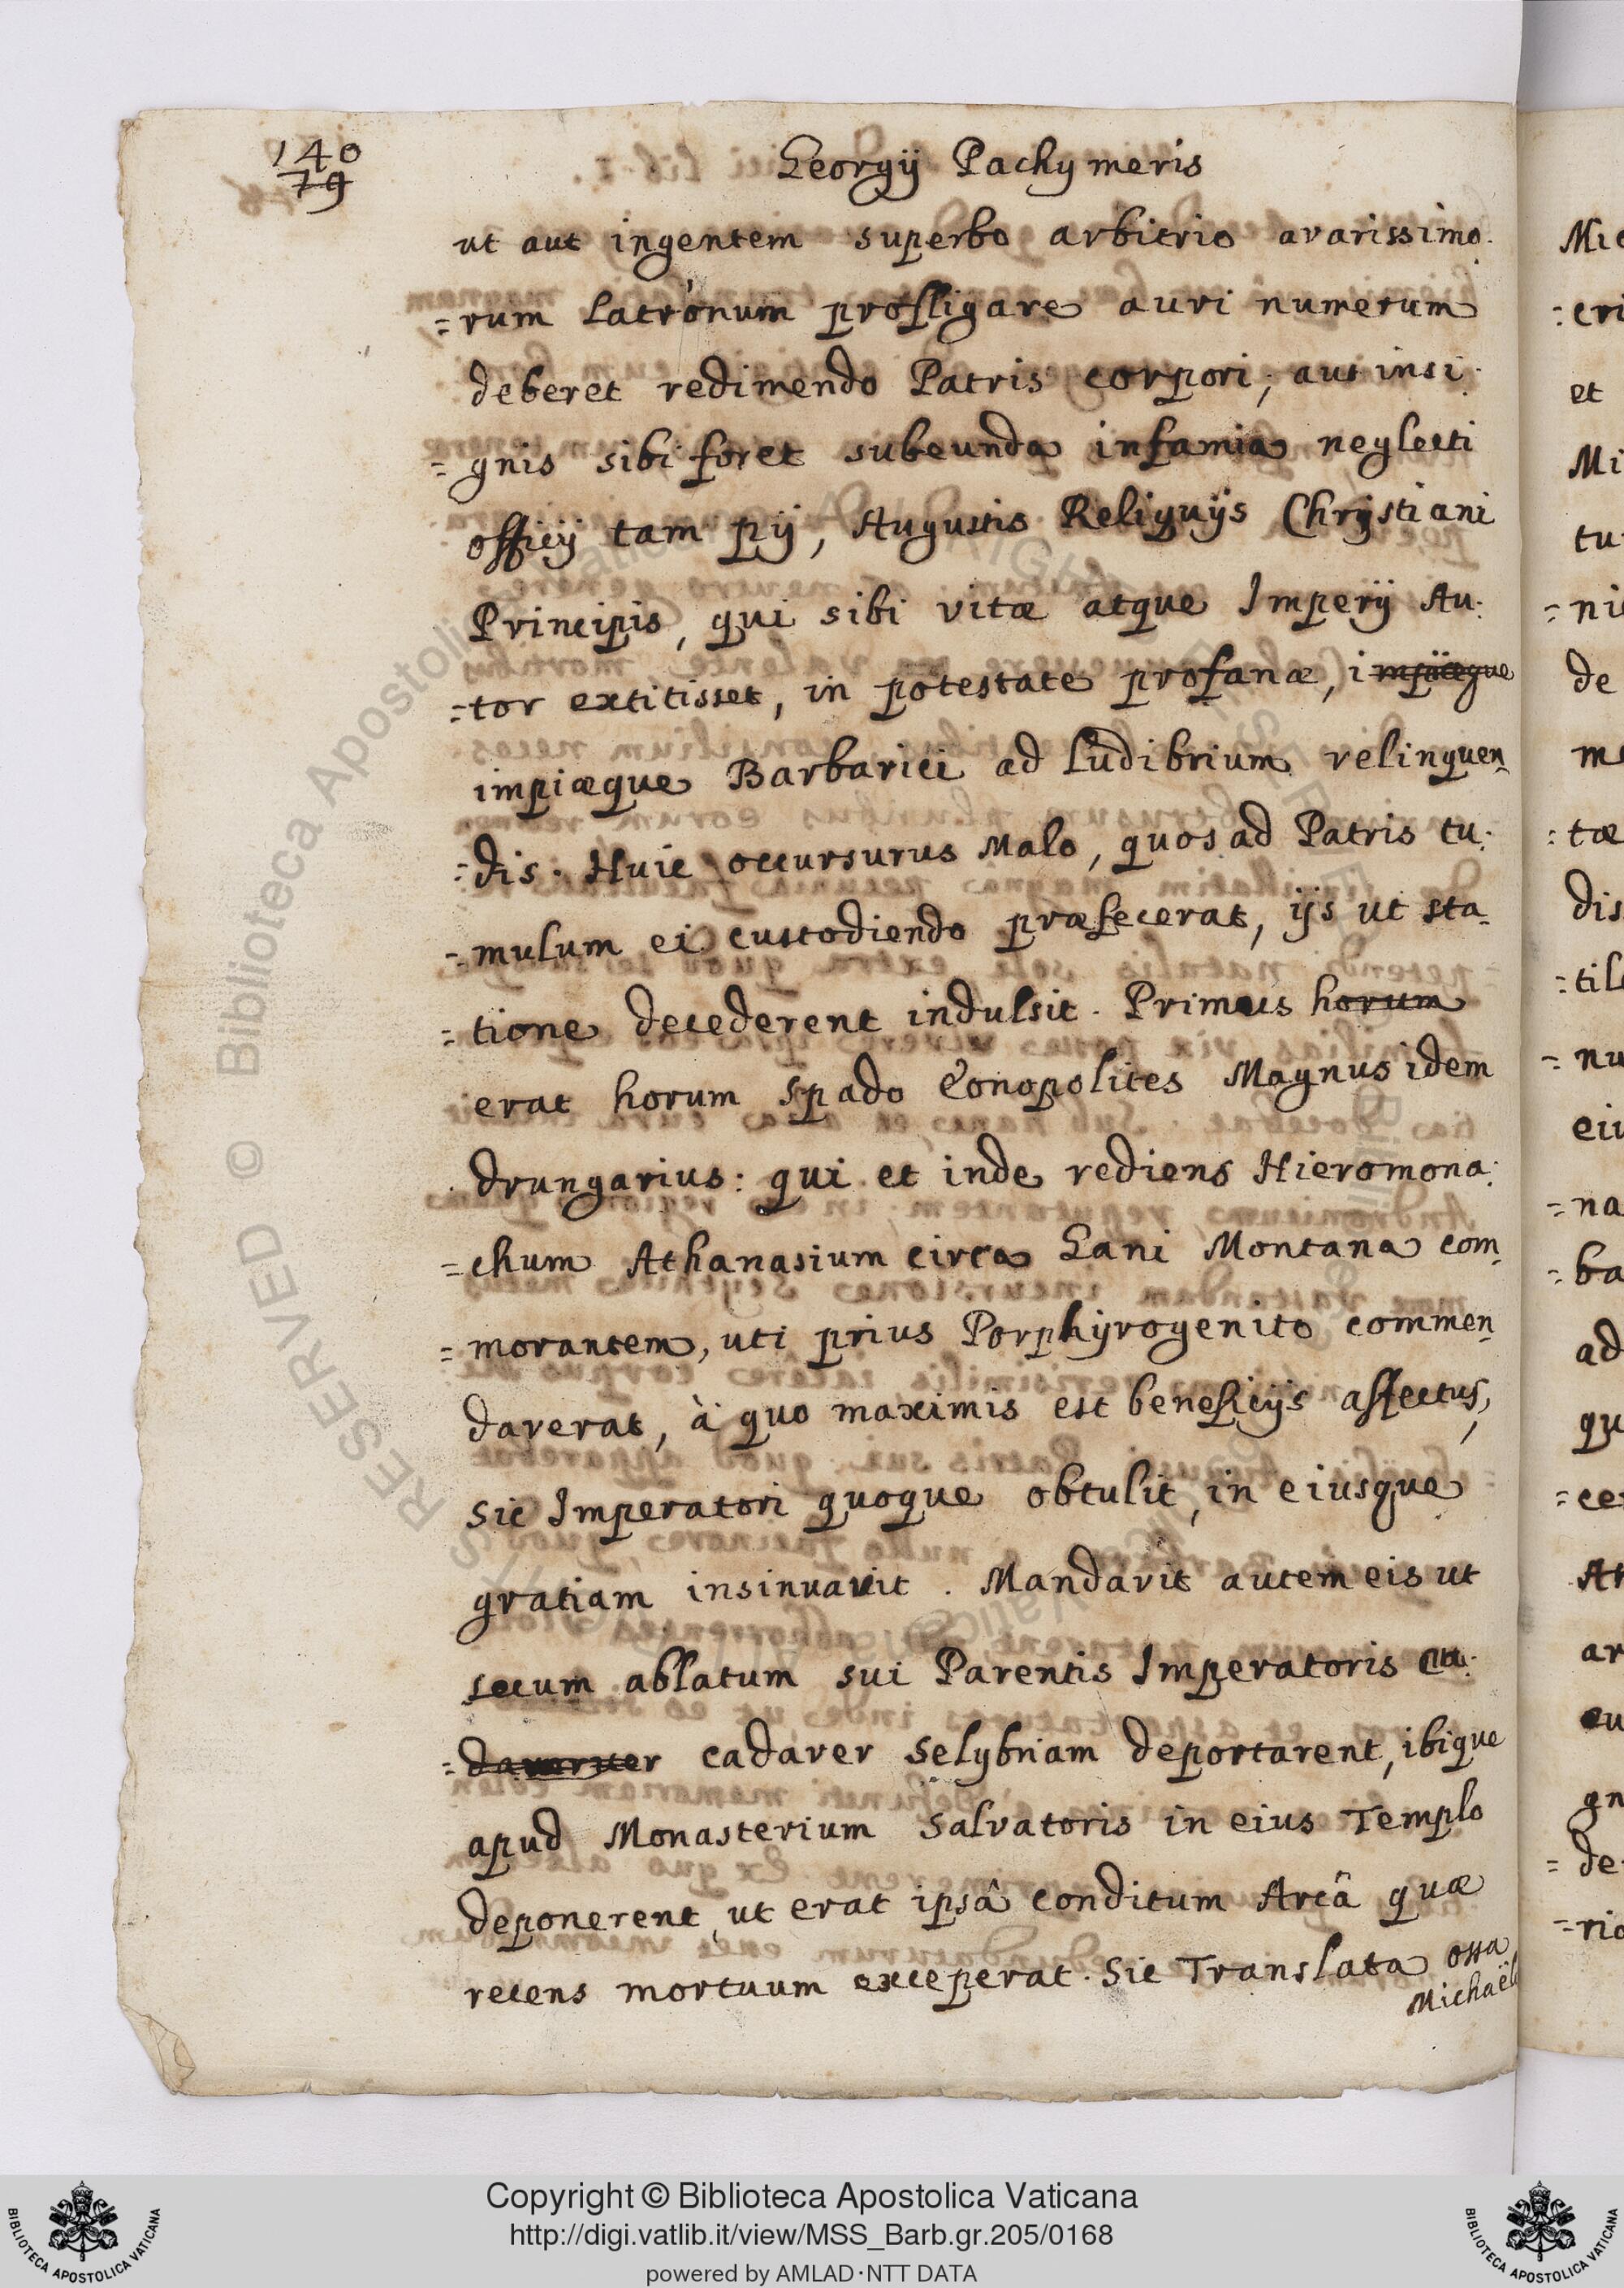 140
79
Georgij Pachymeris
ut aut ingentem superbo arbitrio avarissimo:
=rum Latronum profligare auri numerum
deberet redimendo Patris corpori; aut insi:
=gnis sibi foret subeunda infamia neglecti
officij tam pij, Augustis Reliquijs Chrystiani
Principis, qui sibi vitæ atque Imperij Au:
=tor extitisset, in potestate profanæ, impiæque
impiæque Barbariei ad Ludibrium relinquen=
=dis. Huic occursurus Malo, quos ad Patris tu:
=mulum ei custodiendo præfecerat, ijs ut sta=
=tione decederent indulsit. Primus horum
erat horum spado Eonopolites Magnus idem
drungarius: qui et inde rediens Hieromona:
=chum Athanasium circa Gani Montana com=
=morantem, uti prius Porphyrogenito commen=
daverat, à quo maximis est beneficijs affectus,
sic Imperatori quoque obtulit, in eiusque
gratiam insinuavit. Mandavit autem eis ut
secum ablatum sui Parentis Imperatoris
cadaver Selybriam deportarent, ibique
apud Monasterium Salvatoris in eius Templo
deponerent, ut erat ipsâ conditum Arcâ quæ
recens mortuum exceperat. Sic Translata ossa
Michaël
Mi
=eri
et
Mi
tu
=ni
de
me
:tæ
dis
=til
=nu
eiu
=na
=ba
ad
qu
=ce
At
ar
eu
gn
=de
=ric
RESERVED © Biblioteca Apostolica Vaticana
Copyright © Biblioteca Apostolica Vaticana
http://digi.vatlib.it/view/MSS_Barb.gr.205/0168
powered by AMLAD·NTT DATA
BIBLIOTECA APOSTOLICA VATICANA
BIBLIOTECA APOSTOLICA VATICANA